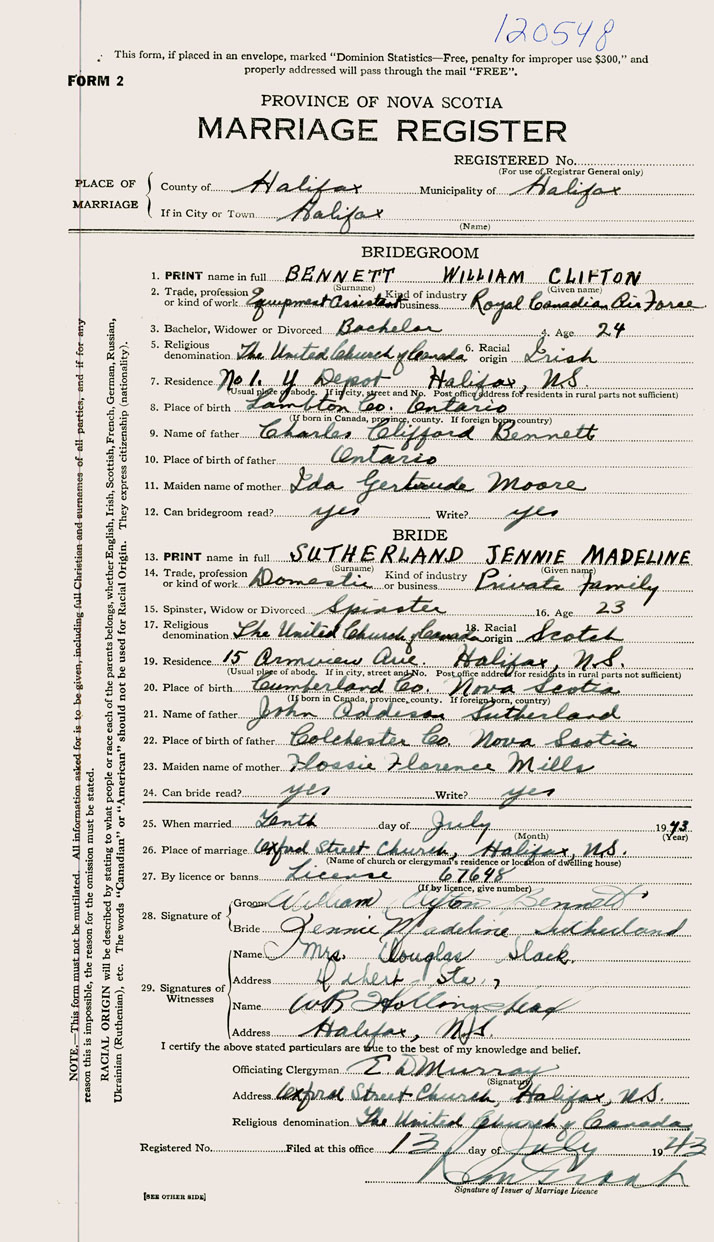 120548
This form, if placed in an envelope, marked "Dominion Statistics—Free, penalty for improper use $300," and
properly addressed will pass through the mail "FREE".
FORM 2
PROVINCE OF NOVA SCOTIA
MARRIAGE REGISTER
REGISTERED No.
(For use of Registrar General only)
PLACE OF MARRIAGE
County of Halifax Municipality of Halifax
If in City or Town Halifax
(Name)
BRIDEGROOM
1. PRINT name in full BENNETT WILLIAM CLIFTON
(Surname) (Given name)
2. Trade, profession or kind of work Equipment Assistant Kind of industry or business Royal Canadian Air Force
3. Bachelor, Widower or Divorced Bachelor 4. Age 24
5. Religious denomination The United Church of Canada 6. Racial origin Irish
7. Residence No 1. Y Depot Halifax, N.S.
(Usual place of abode. If in city, street and No. Post office address for residents in rural parts not sufficient)
8. Place of birth Lambton Co. Ontario
(If born in Canada, province, county. If foreign born, country)
9. Name of father Charles Clifford Bennett
10. Place of birth of father Ontario
11. Maiden name of mother Ida Gertrude Moore
12. Can bridegroom read? yes Write? yes
BRIDE
13. PRINT name in full SUTHERLAND JENNIE MADELINE
(Surname) (Given name)
14. Trade, profession or kind of work Domestic Kind of industry or business Private family
15. Spinster, Widow or Divorced Spinster 16. Age 23
17. Religious denomination The United Church of Canada 18. Racial origin Scotch
19. Residence 15 Armview Ave. Halifax, N.S.
(Usual place of abode. If in city, street and No. Post office address for residents in rural parts not sufficient)
20. Place of birth Cumberland Co. Nova Scotia
(If born in Canada, province, county. If foreign born, country)
21. Name of father John Addison Sutherland
22. Place of birth of father Colchester Co. Nova Scotia
23. Maiden name of mother Flossie Florence Mills
24. Can bride read? yes Write? yes
25. When married Tenth day of July 1943
(Month) (Year)
26. Place of marriage Oxford Street Church, Halifax, N.S.
(Name of church or clergyman's residence or location of dwelling house)
27. By licence or banns License 67648
(If by licence, give number)
28. Signature of
Groom William Clifton Bennett
Bride Jennie Madeline Sutherland
29. Signatures of Witnesses
Name Mrs. Douglas Slack
Address Debert Sta.,
Name WR Hollingshead
Address Halifax, N.S.
I certify the above stated particulars are true to the best of my knowledge and belief.
Officiating Clergyman E. D Murray
(Signature)
Address Oxford Street Church, Halifax, N.S.
Religious denomination The United Church of Canada
Registered No. Filed at this office 13 day of July 1943
Signature of Issuer of Marriage Licence
[SEE OTHER SIDE]
NOTE.—This form must not be mutilated. All information asked for is to be given, including full Christian and surnames of all parties, and if for any
reason this is impossible, the reason for the omission must be stated.
RACIAL ORIGIN will be described by stating to what people or race each of the parents belongs, whether English, Irish, Scottish, French, German, Russian,
Ukrainian (Ruthenian), etc. The words "Canadian" or "American" should not be used for Racial Origin. They express citizenship (nationality).